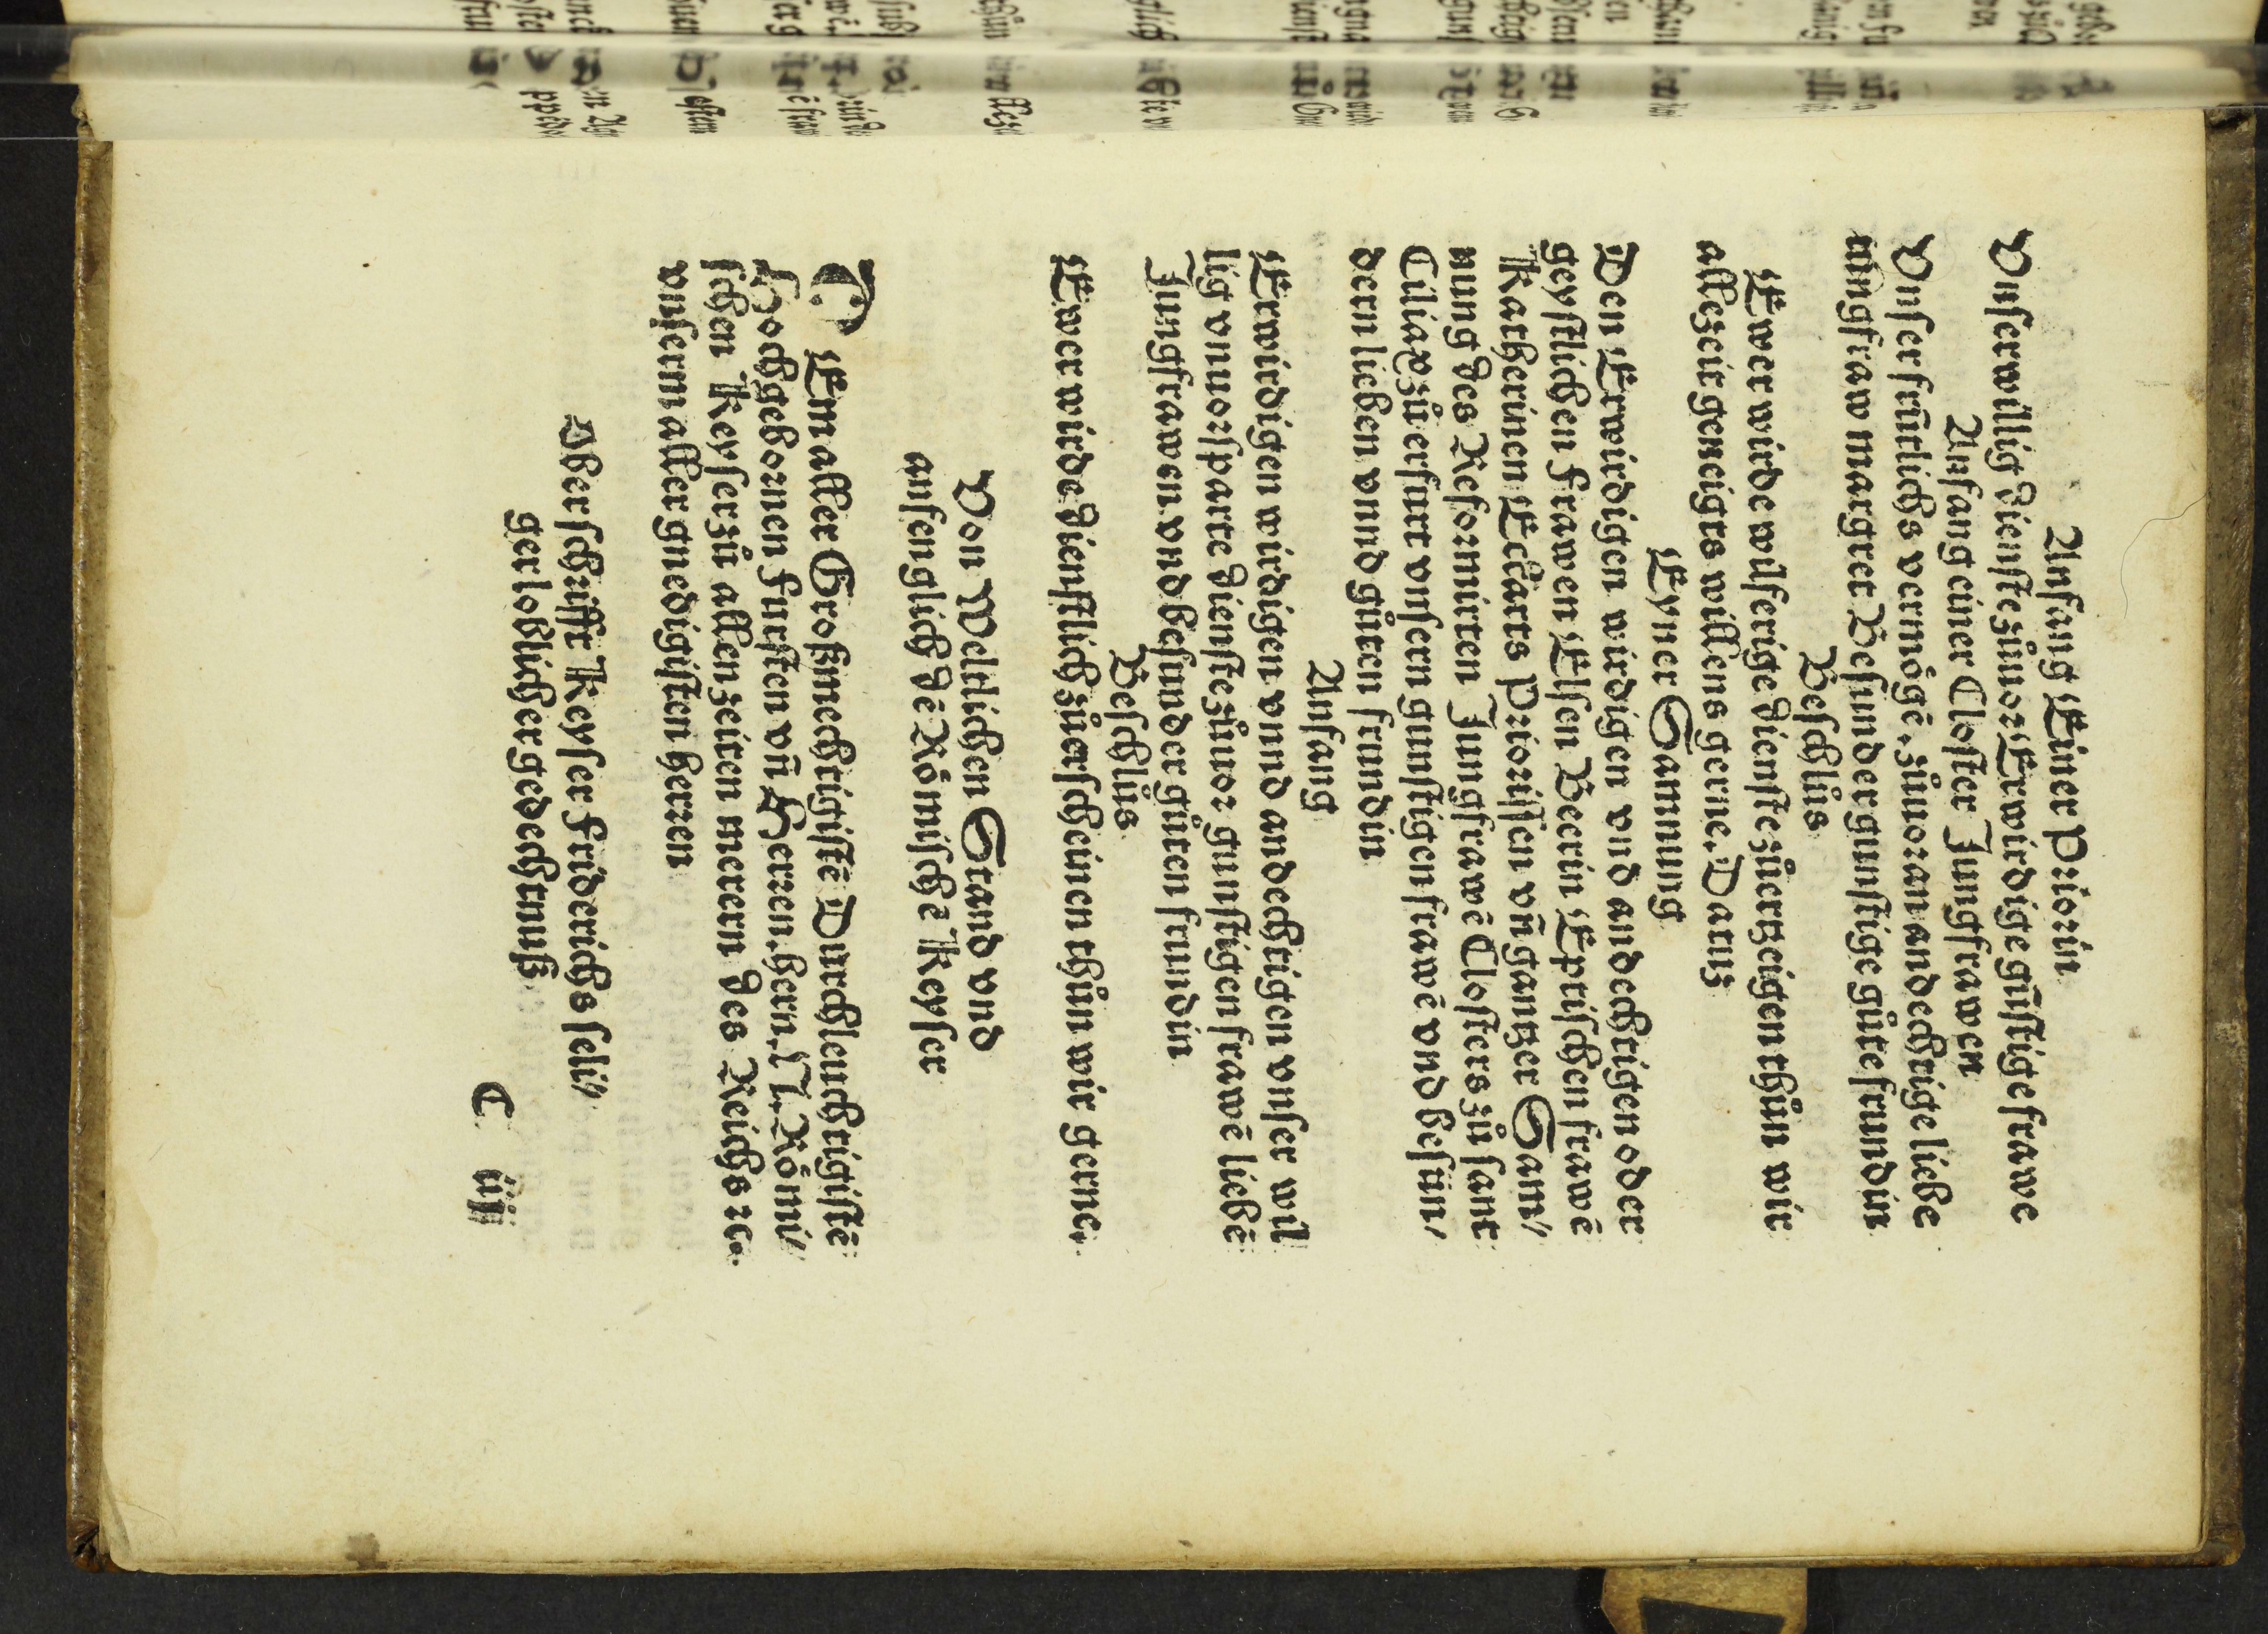 Anfang Einer Priorin
Unser willig dienste zůuor Erwirdige gūstige frawe
Anfang einer Closter Jungfrawen
Unser frūtlichs vermögē, zůuoran andechtige liebe
iungfraw margret Besunder gunstige gůte frundin
Beschlůs
Ewer wirde wilferige dienste zůertzeigen thůn wir
allezeit geneigts willens gerne. Datum
Eyner Samnung
Den Erwirdigen wirdigen vnd andechtigen oder
geystlichen frawen Elsen Beerin Eptischen frawē
Katherinen Eckarts Priorissen vn̄ gantzer Sam⸗
nung des Reformirten Jungfrawē Closters zů sant
Ciliax zů erfurt vnsern gunstigen frawē vnd besūn⸗
dern lieben vnnd gůten frundin
Anfang
Erwirdigen wirdigen vnnd andechtigen vnser wil
lig vnuorsparte dienste zůuor gunstigen frawē liebē
Jungfrawen vnd besunder gůten frundin
Beschlůs
Ewer wirde dienstlich zůerscheinen thůn wir gerne.
Von Weltlichen Stand vnd
anfenglich dē Römischē Keyser
Em aller Großmechtigistē Durchleuchtigistē
Hochgebornen fursten vn̄ Herren. hern. N. Römi⸗
schen Keyser zů allen zeiten merern des Reichs ꝛc.
vnsern aller gnedigisten herren
Uberschrifft Keyser Friderichs seli⸗
ger loblicher gedechtnuß
C iij